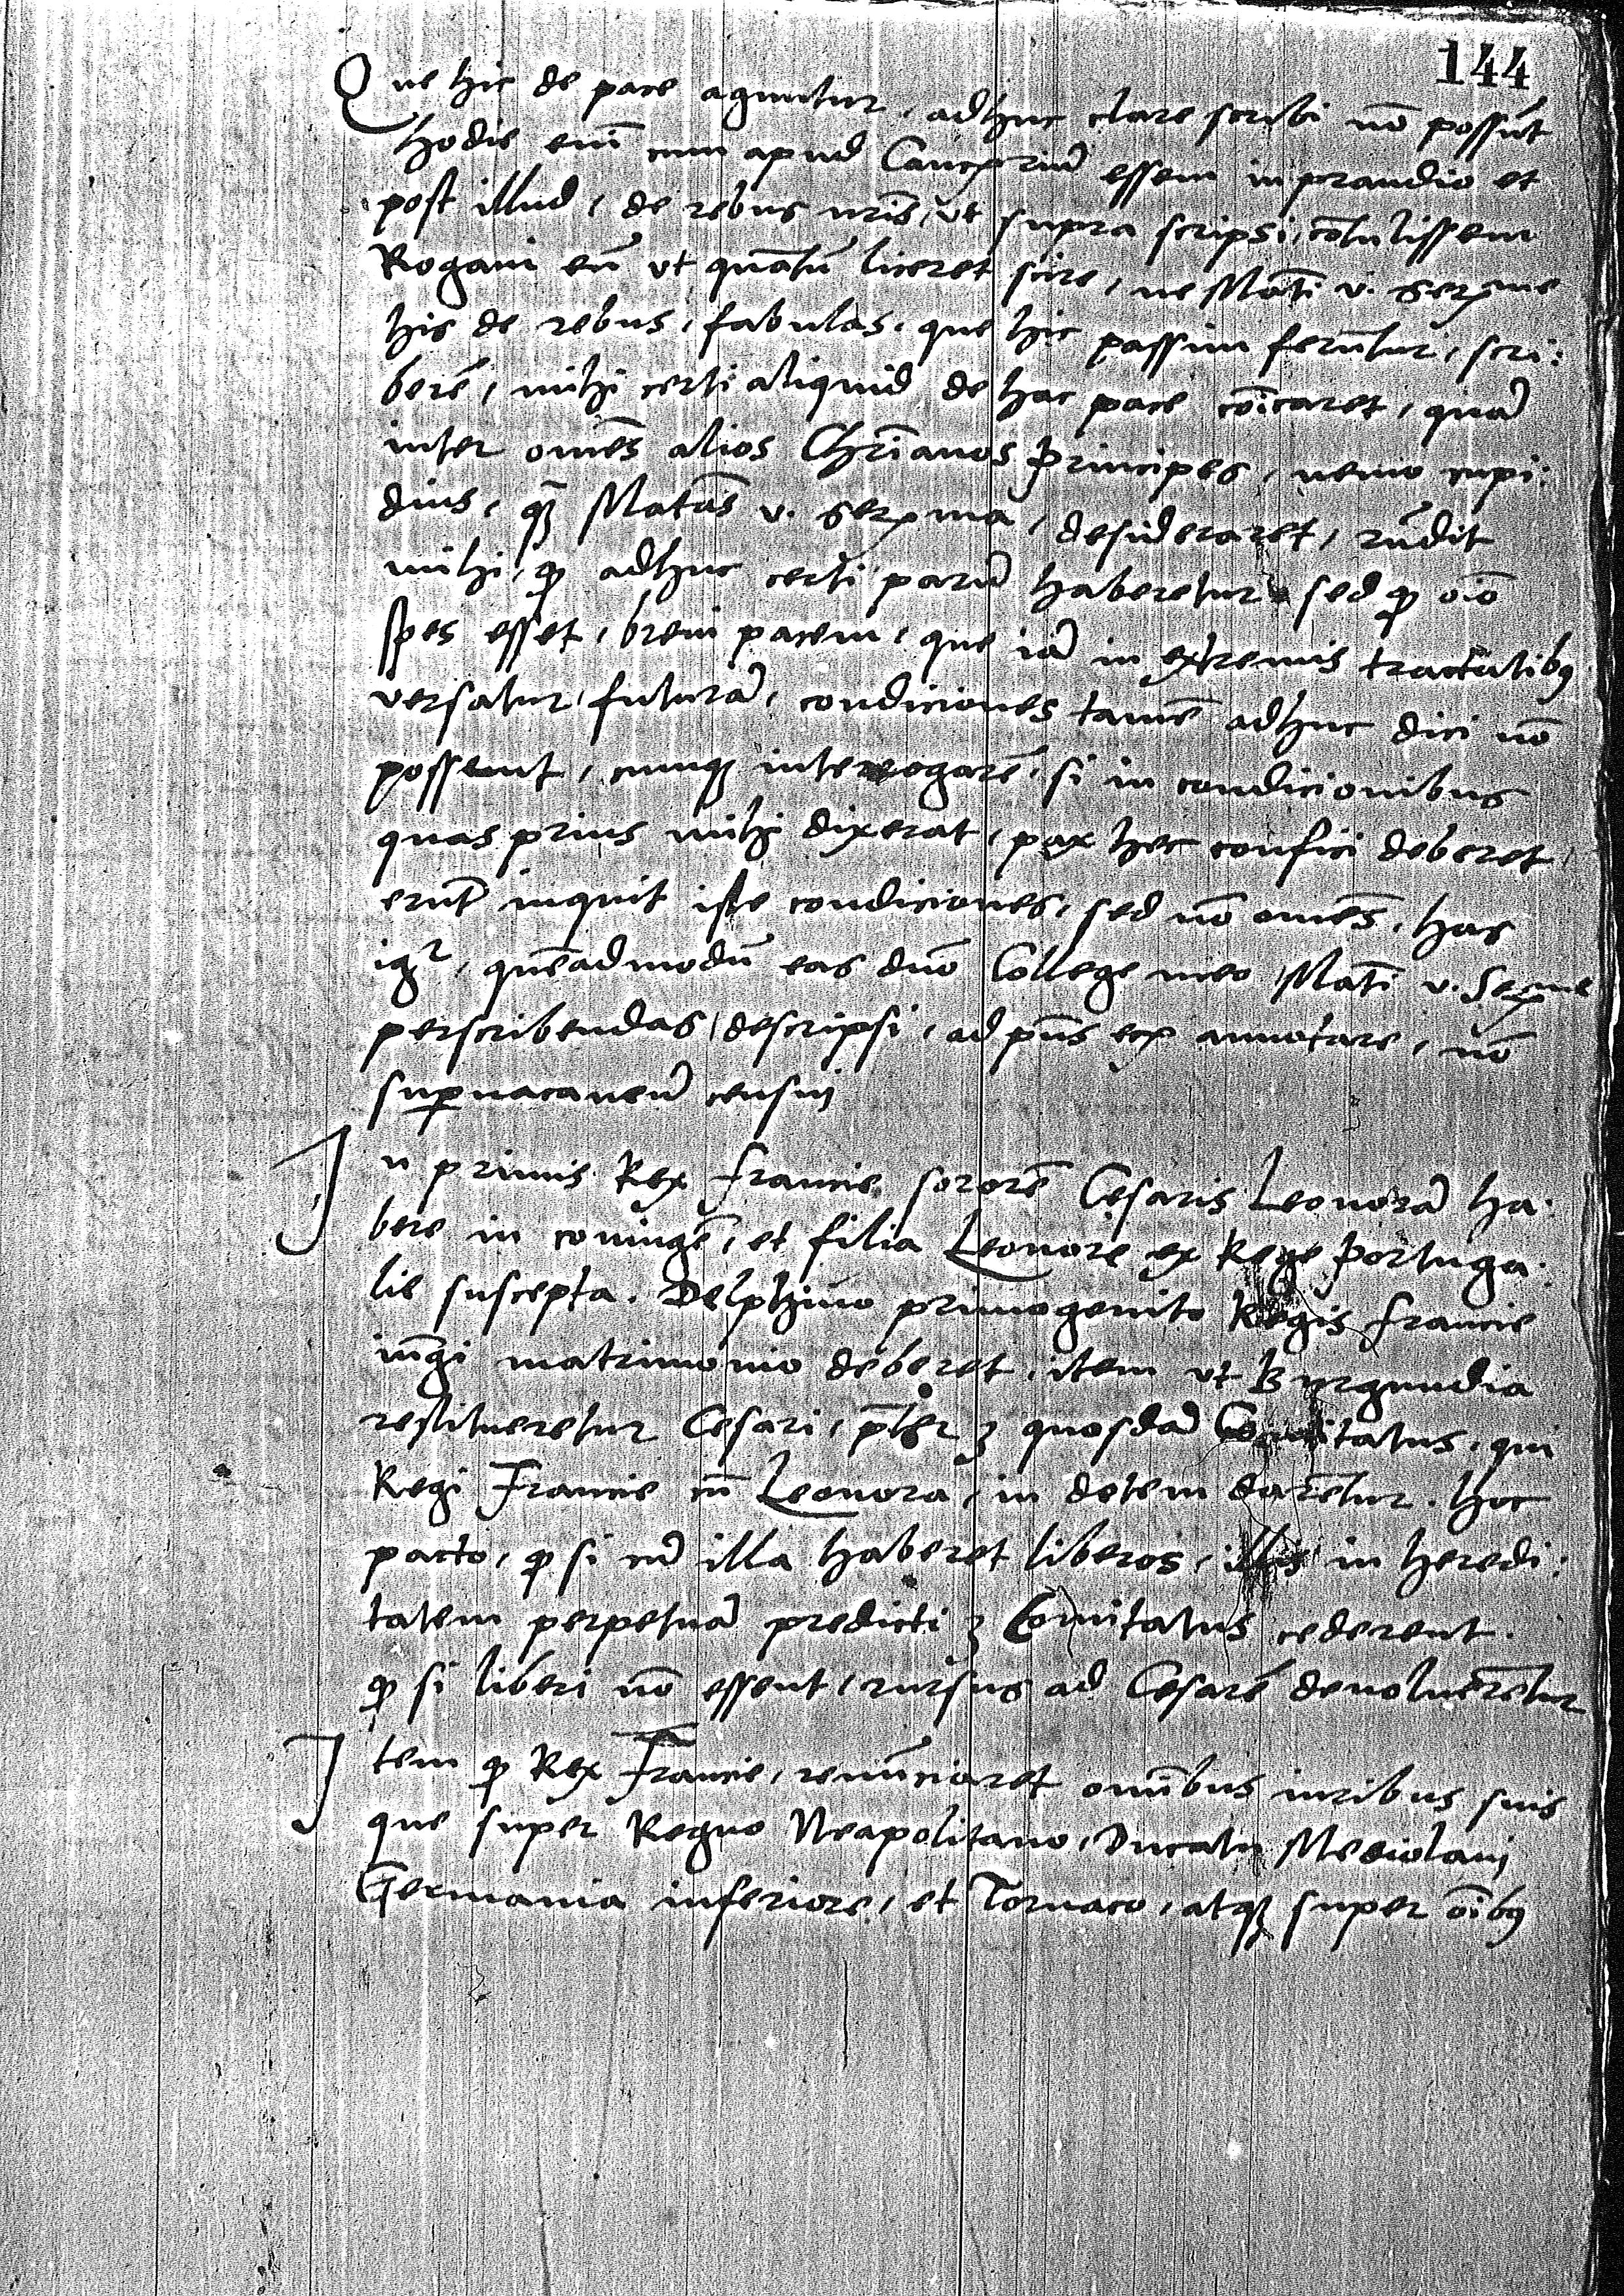 144
Que hic de pace aguntur, adhuc clare scribi nō possūt
hodie enī cum apud Cancriū essem in prandio et
post illud, de rebus nrīs, vt supra scripsi, cōtulissem
Rogavi eū vt quātū liceret scire, ne Matī v. serme
his de rebus, fabulas, que hic passim ferūtur, scri:
berē, mihi certi aliquid de hac pace cōicaret, quā
inter omēs alios Chrīanos principes, nemo cupi:
dius, qȝ Matās v. serma, desideraret, rūdit
mihi, ꝙ adhuc certi parū haberetur sed ꝙ oīo
spes esset, brevi pacem, que iā in extremis tractatibꝰ
versatur, futurā, condiciones tamē adhuc dici nō
possent, cumqȝ interrogarē, si in condicionibus
quas prius mihi dixerat, pax hec confici deberet,
erūt inquit iste condiciones, sed nō omēs, has
igr, quēadmodū eas dnō College meo Matī v. Serme
perscribendas descripsi, ad pn̄s ecḡ annotare, nō
supervacaneū censui
In primis Rex francie sororē Cesaris Leonorā ha.
bere in coniugē, et filia Leonore ex Rege portuga.
lie suscepta. Delphino primogenito Regis francie
iūgi matrimonio deberet, item vt Burgundia
restitueretur Cesari, p̄ter quosdā Comitatus, qui
Regi Francie cū Leonora, in dotem darētur. hoc
pacto, ꝙ si cū illa haberet liberos, illis in heredi:
tatem perpetuā predicti Comitatus cederent.
ꝙ si liberi nō essent, rursus ad Cesarē devolverētur
Item ꝙ Rex Francie, renūciaret omībus iuribus suis
que super Regno Neapolitano, Ducatu Mediolani
Germania inferiore, et Tornaco, atqȝ super oībꝰ